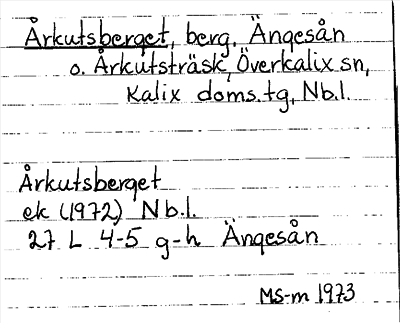 Årkutsberget, berg, Ängesån
o. Årkutsträsk, Överkalix sn,
Kalix doms.tg, Nb.l.
Årkutsberget
ek (1972) Nb.l.
27 L 4-5 g-h Ängesån
MS-m 1973